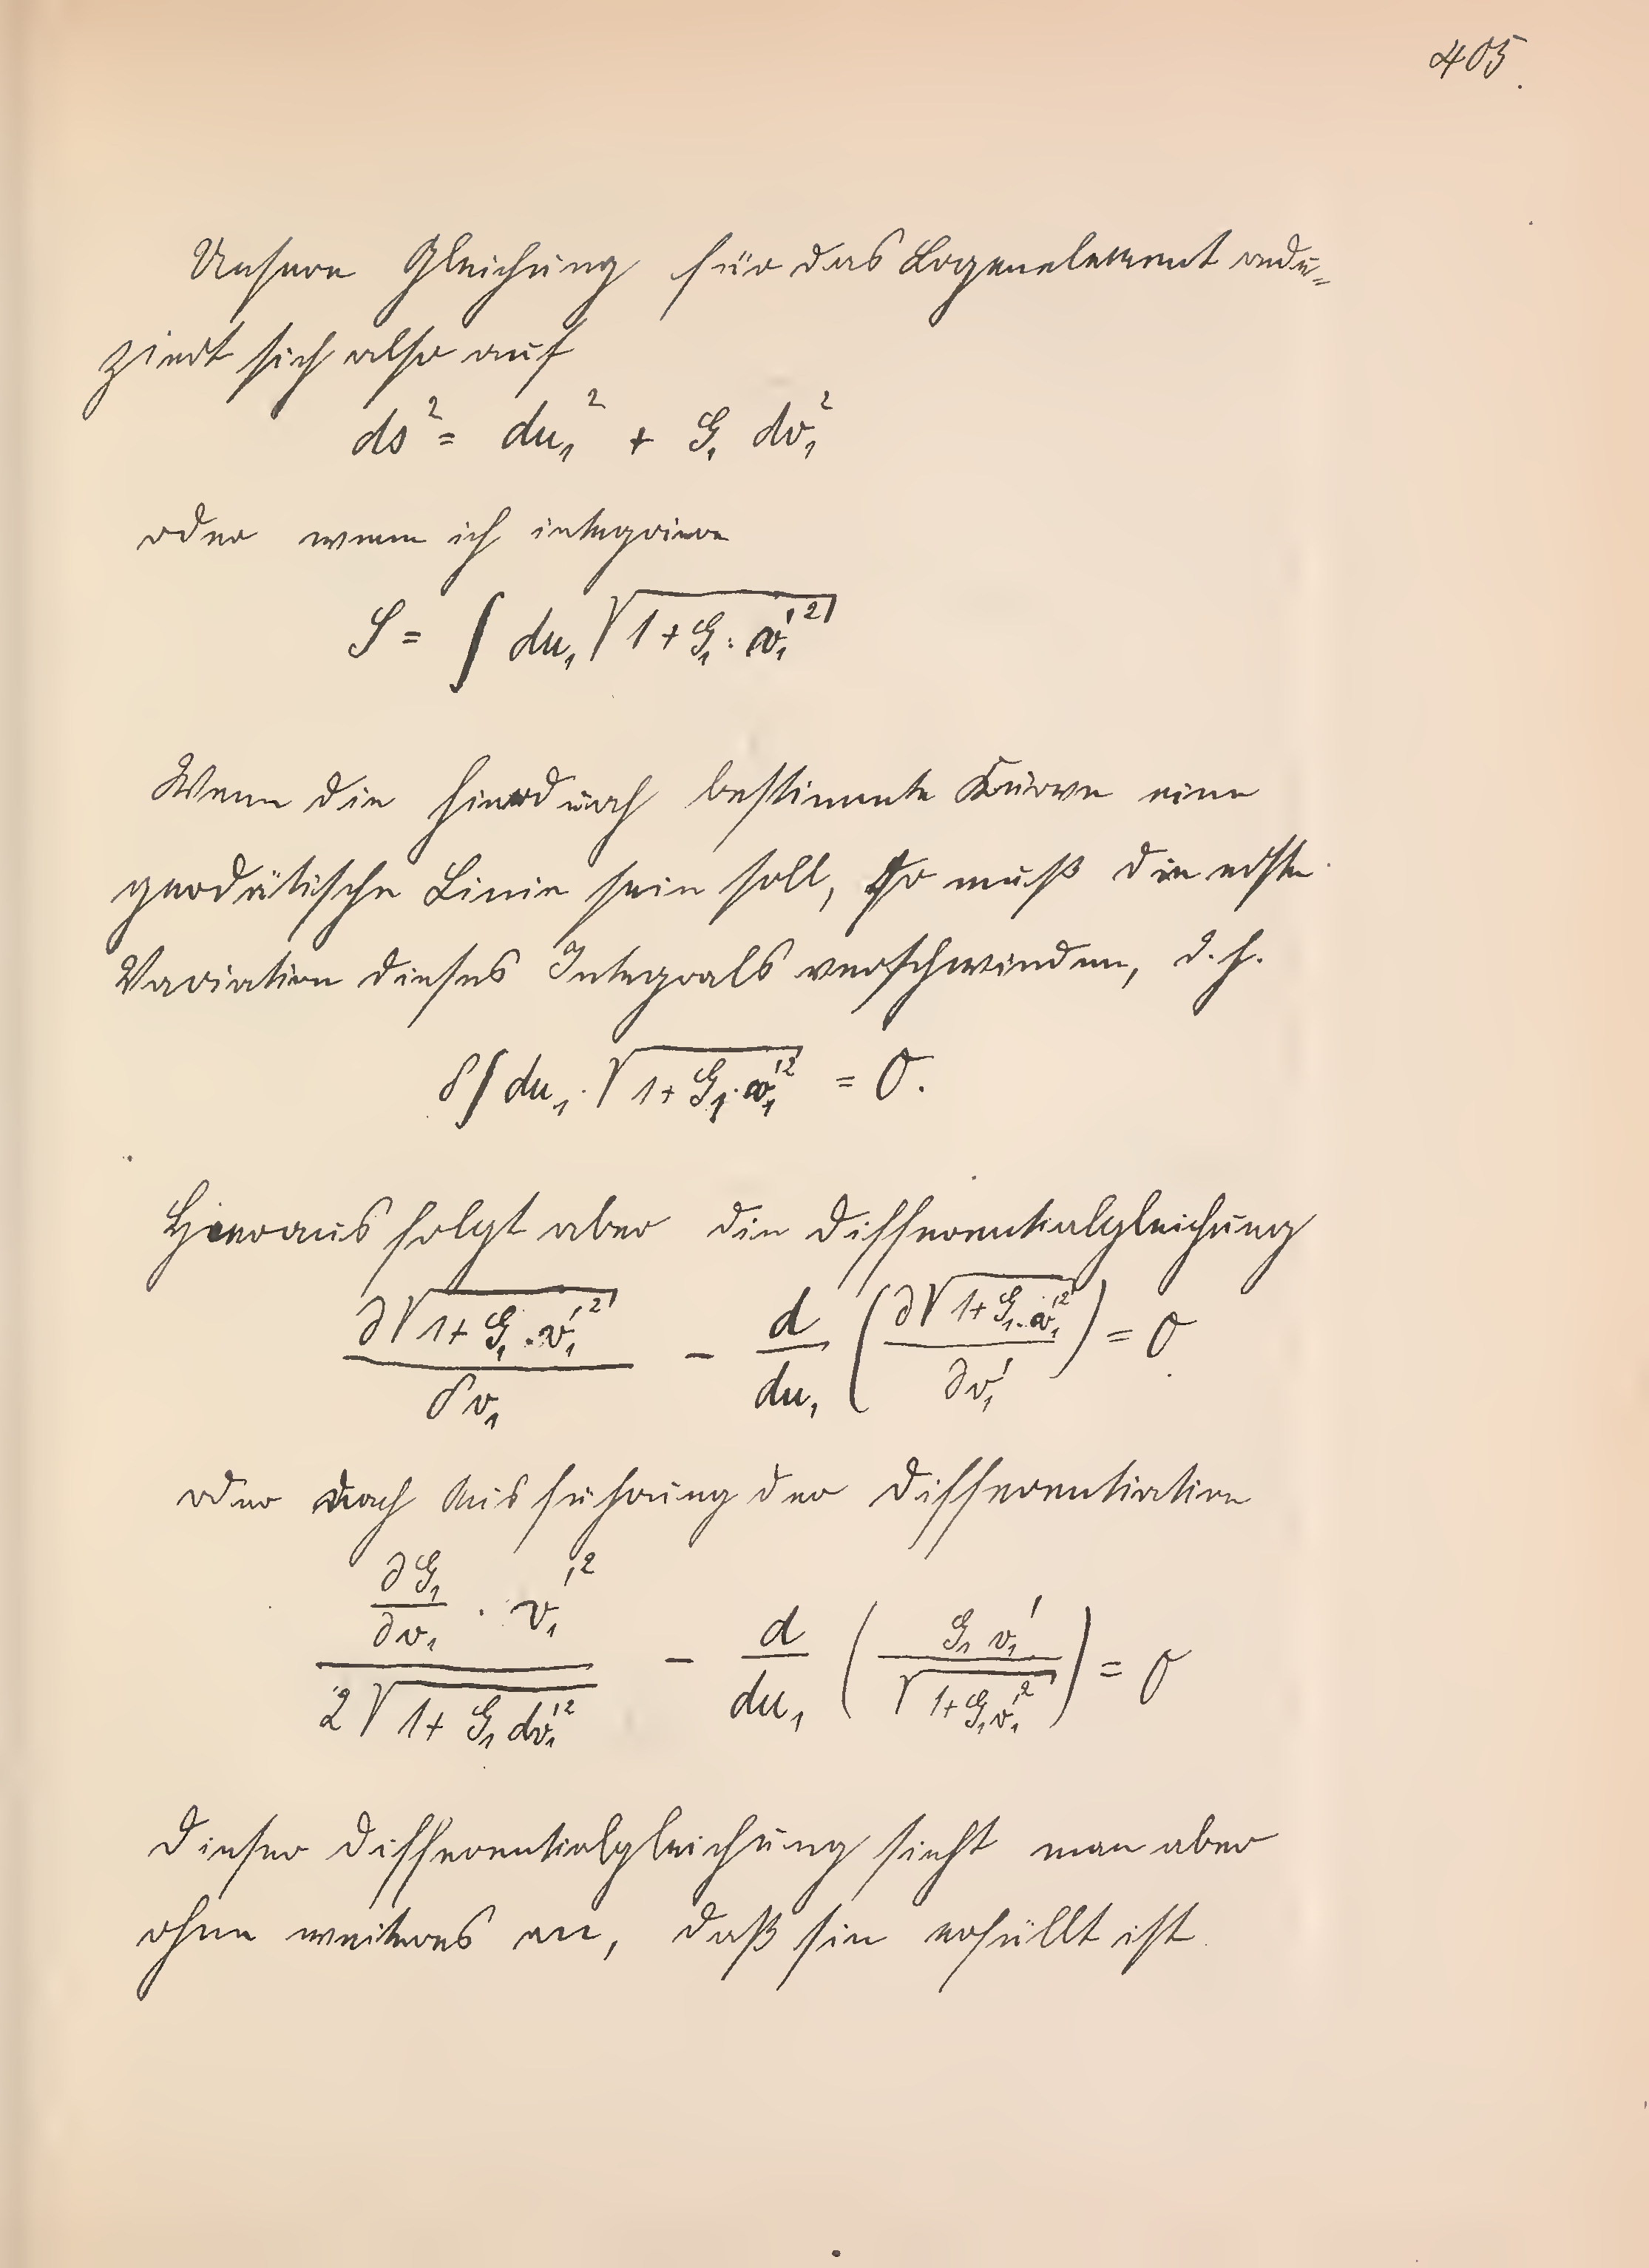 405.
Unsere Gleichung für das Bogenelement redu-
ziert sich also auf
ds² = du₁² + G₁ dv₁²
oder wenn ich integriere
S = ∫ du₁ √(1 + G₁ · v₁'²)
Wenn die hierdurch bestimmte Kurve eine
geodätische Linie sein soll, so muß die erste
Variation dieses Integrals verschwinden, d. h.
δ∫ du₁ · √(1 + G₁ · v₁'²) = 0.
Hieraus folgt aber die Differentialgleichung
∂√(1 + G₁ · v₁'²) / δv₁ − d/du₁ (∂√(1 + G₁ · v₁'²) / ∂v₁') = 0
oder nach Ausführung der Differentiation
(∂G₁/∂v₁ · v₁'²) / (2√(1 + G₁ dv₁'²)) − d/du₁ (G₁ v₁' / √(1 + G₁ v₁'²)) = 0
Dieser Differentialgleichung sieht man aber
ohne weiteres an, daß sie erfüllt ist.